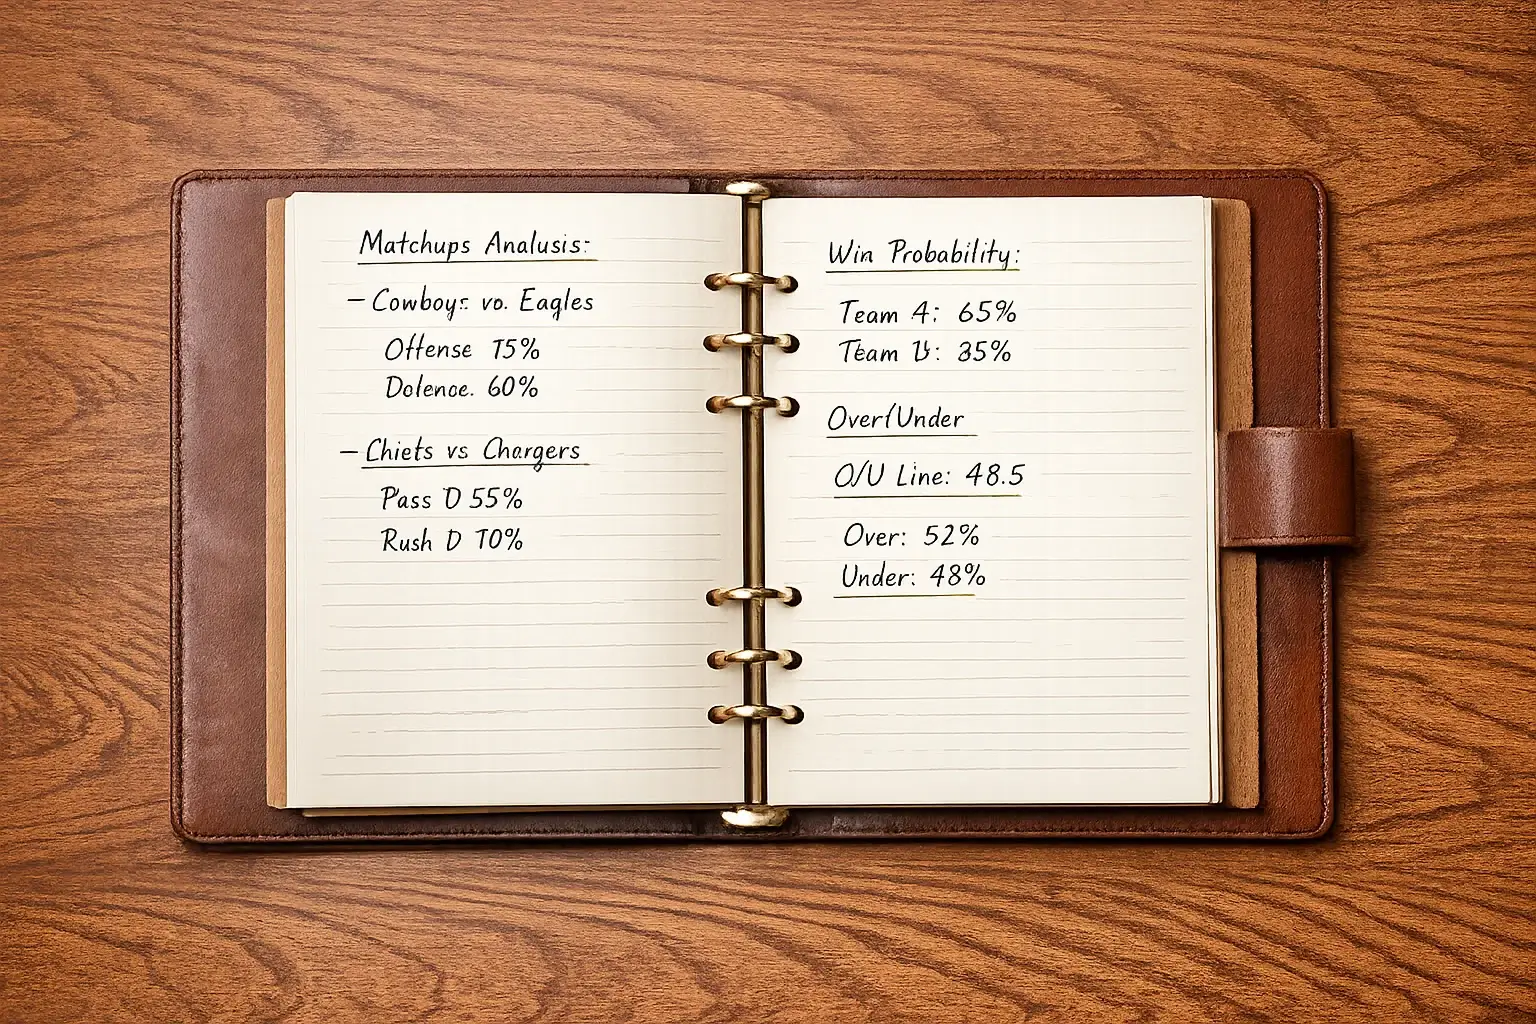 Matchups Analusis:
– Cowboys vo. Eagles
Offense T5%
Dolence. 60%
– Chiets vs Chargers
Pass D 55%
Rush D T0%
Win Probability:
Team A: 65%
Team B: 35%
Over/Under
O/U Line: 48.5
Over: 52%
Under: 48%